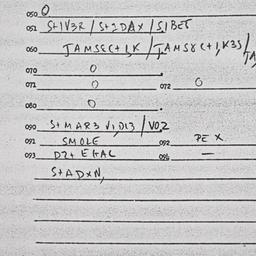 050 0
051 S+1V3R / S+2DAX / S1BET
060 JAMS8C+1,K / JAMS8C+1,K3S /
070 0
071 0 072 0
080 0
090 S+MAR3 V1,D13 / V0,2
091 SMOLE 092 PE X
093 D2+ E+AL 096 —
S+ADXN,